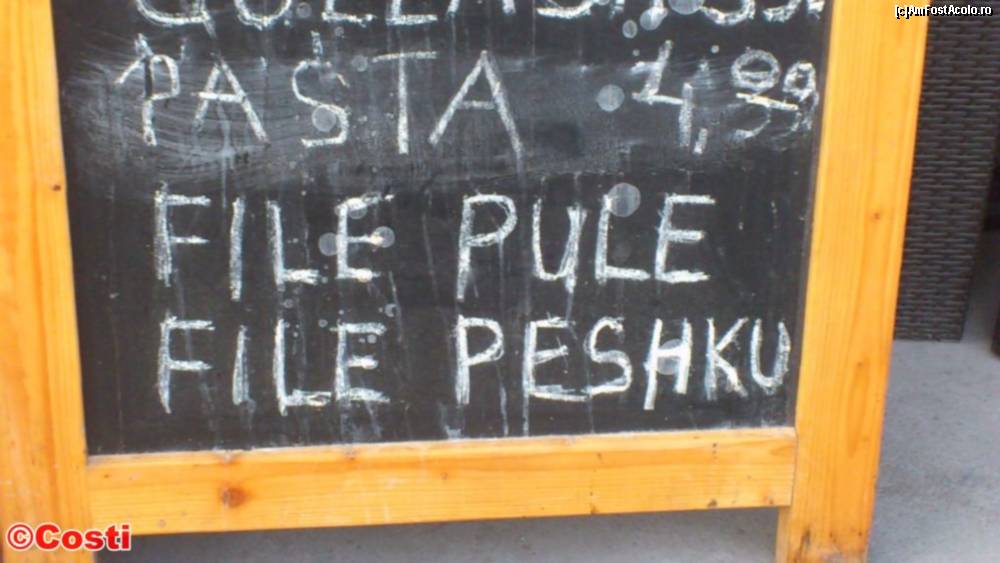 [c]AmFostAcolo.ro
PASTA 4,99
FILE PULE
FILE PESHKU
©Costi